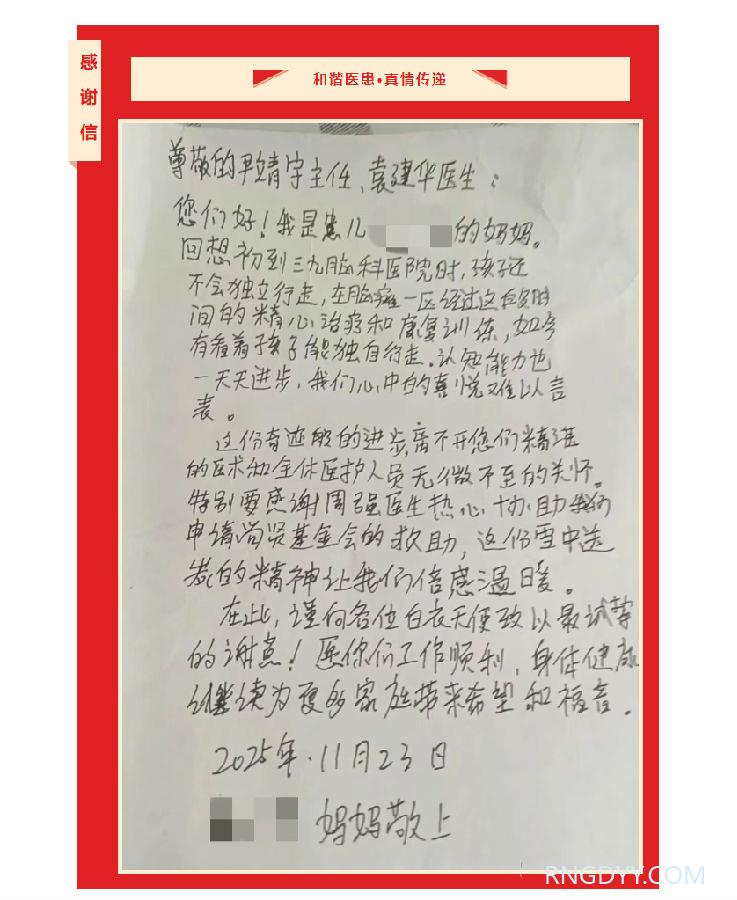 感谢信
和谐医患•真情传递
尊敬的尹靖宇主任、袁建华医生：
您们好！我是患儿的妈妈。
回想初到三九脑科医院时，孩子还
不会独立行走，在脑瘫一区经过这段时
间的精心治疗和康复训练，如今
有看着孩子能独自行走。认知能力也
一天天进步，我们心中的喜悦难以言
表。
这份奇迹般的进步离不开您们精湛
的医术和全体医护人员无微不至的关怀。
特别要感谢周强医生热心协助我们
申请尚贤基金会的救助，这份雪中送
炭的精神让我们倍感温暖。
在此，谨向各位白衣天使致以最诚挚
的谢意！愿你们工作顺利，身体健康
继续为更多家庭带来希望和福音．
2025年．11月23日
妈妈敬上
RNGDYY.COM